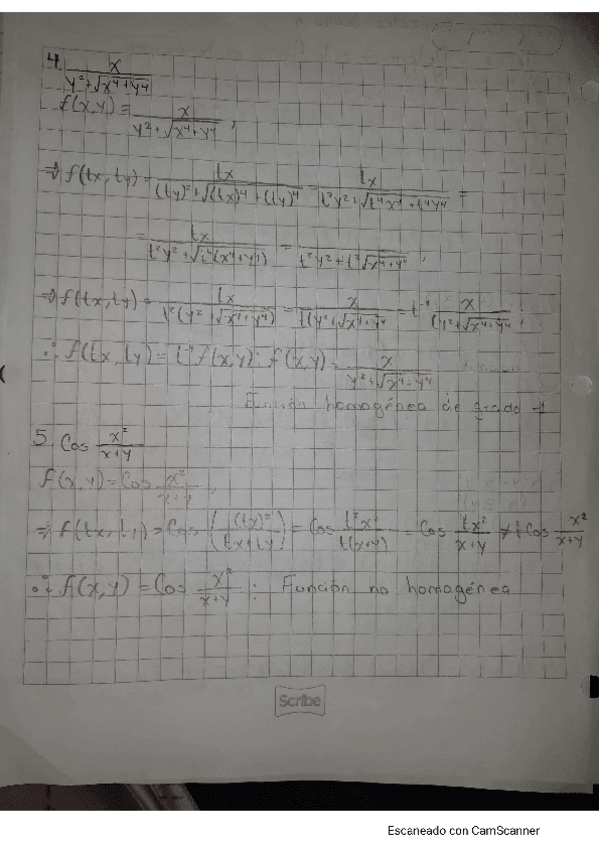 4. x / (y²+√(x⁴+y⁴))
f(x,y) = x / (y²+√(x⁴+y⁴)),
⇒ f(tx, ty) = tx / ((ty)²+√((tx)⁴+(ty)⁴)) = tx / (t²y²+√(t⁴x⁴+t⁴y⁴)) =
= tx / (t²y²+√(t⁴(x⁴+y⁴))) = / (t²y²+t²√(x⁴+y⁴)),
⇒ f(tx, ty) = tx / (t²(y²+√(x⁴+y⁴))) = x / (t(y²+√(x⁴+y⁴))) = t⁻¹ x / (y²+√(x⁴+y⁴));
∴ f(tx, ty) = t⁻¹ f(x,y): f(x,y) = x / (y²+√(x⁴+y⁴))
Función homogénea de grado -1
5. Cos x²/(x+y)
f(x,y) = Cos x²/(x+y),
⇒ f(tx, ty) = Cos ((tx)²/(tx+ty)) = Cos t²x²/(t(x+y)) = Cos tx²/(x+y) ≠ t Cos x²/(x+y)
∴ f(x,y) = Cos x²/(x+y) : Función no homogénea
Scribe
Escaneado con CamScanner